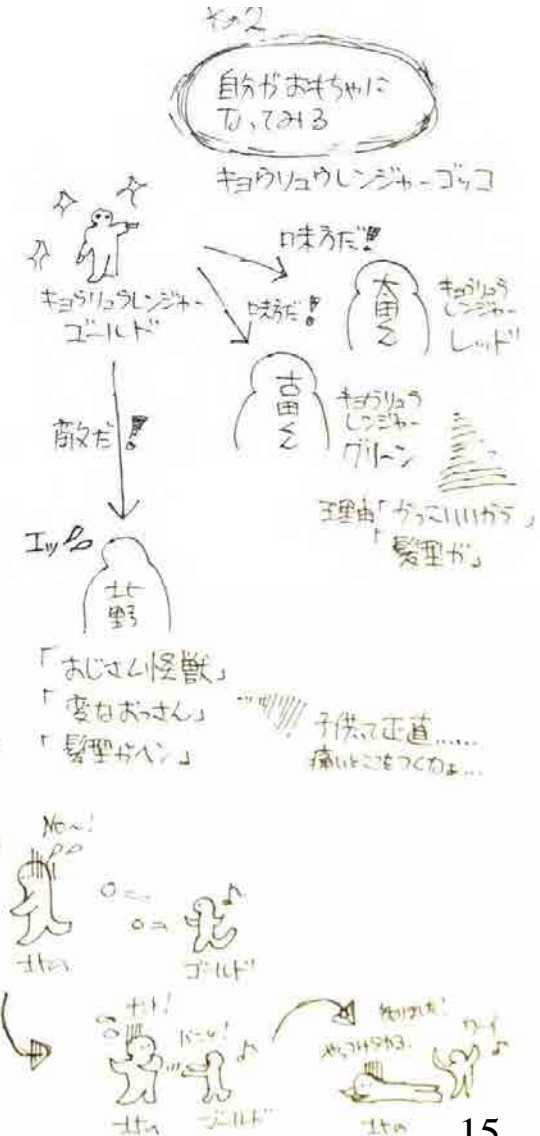 その2
自分がおもちゃに
なってみる
キョウリュウレンジャーゴッコ
味方だ!!
キョウリュウレンジャー
ゴールド
味方だ!
太田くん
キョウリュウ
レンジャー
レッド
古田くん
キョウリュウ
レンジャー
グリーン
敵だ!
理由「かっこいいから」
「髪型が」
エッ
北野
「おじさん怪獣」
「変なおっさん」
「髪型がヘン」
子供って正直……
痛いとこをつくなぁ…
北の
ゴールド
北の
ゴールド
北の
15